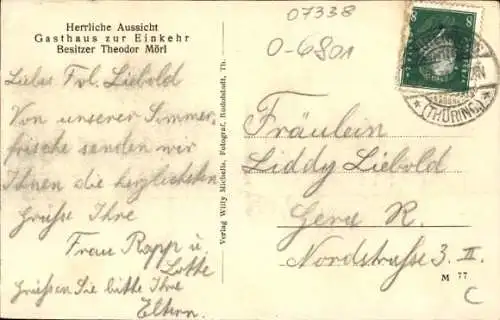 Herrliche Aussicht
Gasthaus zur Einkehr
Besitzer Theodor Mörl
Liebes Frl. Liebold
Von unserer Sommer,
frische senden wir
Ihnen die herzlichsten
Grüsse Ihre
Frau Rapp u.
Lotte
Grüssen Sie bitte Ihre
Eltern.
Verlag Willy Michelis, Fotograf, Rudolstadt, Th.
07338
0-6801
8
8
(THÜRING.)
Fräulein
Liddy Liebold
Gera R.
Nordstrasse 3. II.
M 77
C